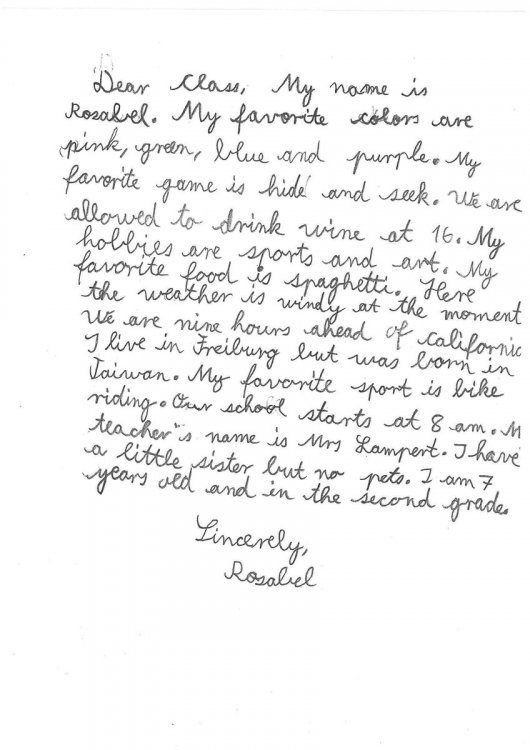 Dear Class, My name is
Rosabel. My favorite colors are
pink, green, blue and purple. My
favorite game is hide and seek. We are
allowed to drink wine at 16. My
hobbies are sports and art. My
favorite food is spaghetti. Here
the weather is windy at the moment
We are nine hours ahead of california
I live in Freiburg but was born in
Taiwan. My favorite sport is bike
riding. Our school starts at 8 am. M
teacher"s name is Mrs Lampert. I have
a little sister but no pets. I am 7
years old and in the second grade.
Sincerely,
Rosabel